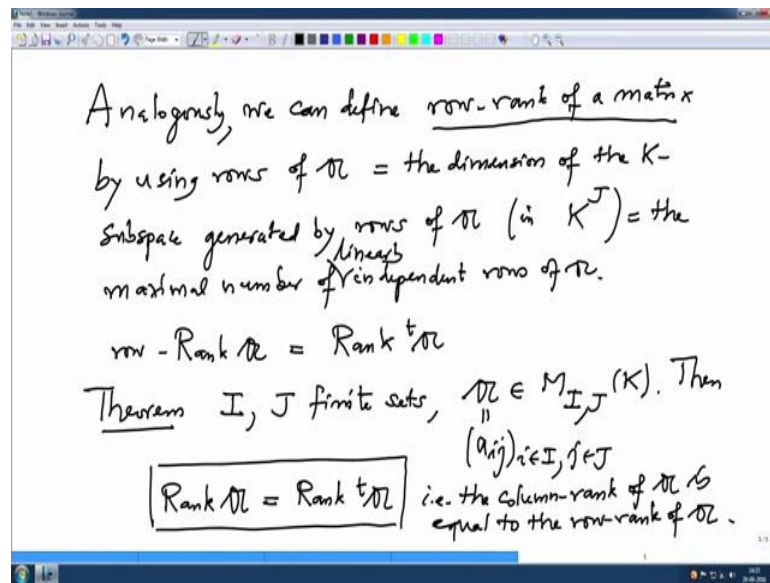 Note1 - Windows Journal
File Edit View Insert Actions Tools Help
Page Width
Analogously, we can define row-rank of a matrix
by using rows of 𝔄 = the dimension of the K-
subspace generated by rows of 𝔄 (in K^J) = the
linearly
maximal number of independent rows of 𝔄.
row-Rank 𝔄 = Rank ᵗ𝔄
Theorem I, J finite sets, 𝔄 ∈ M_{I,J}(K). Then
||
(a_{ij})_{i∈I, j∈J}
Rank 𝔄 = Rank ᵗ𝔄 i.e. the column-rank of 𝔄 is
equal to the row-rank of 𝔄.
5/5